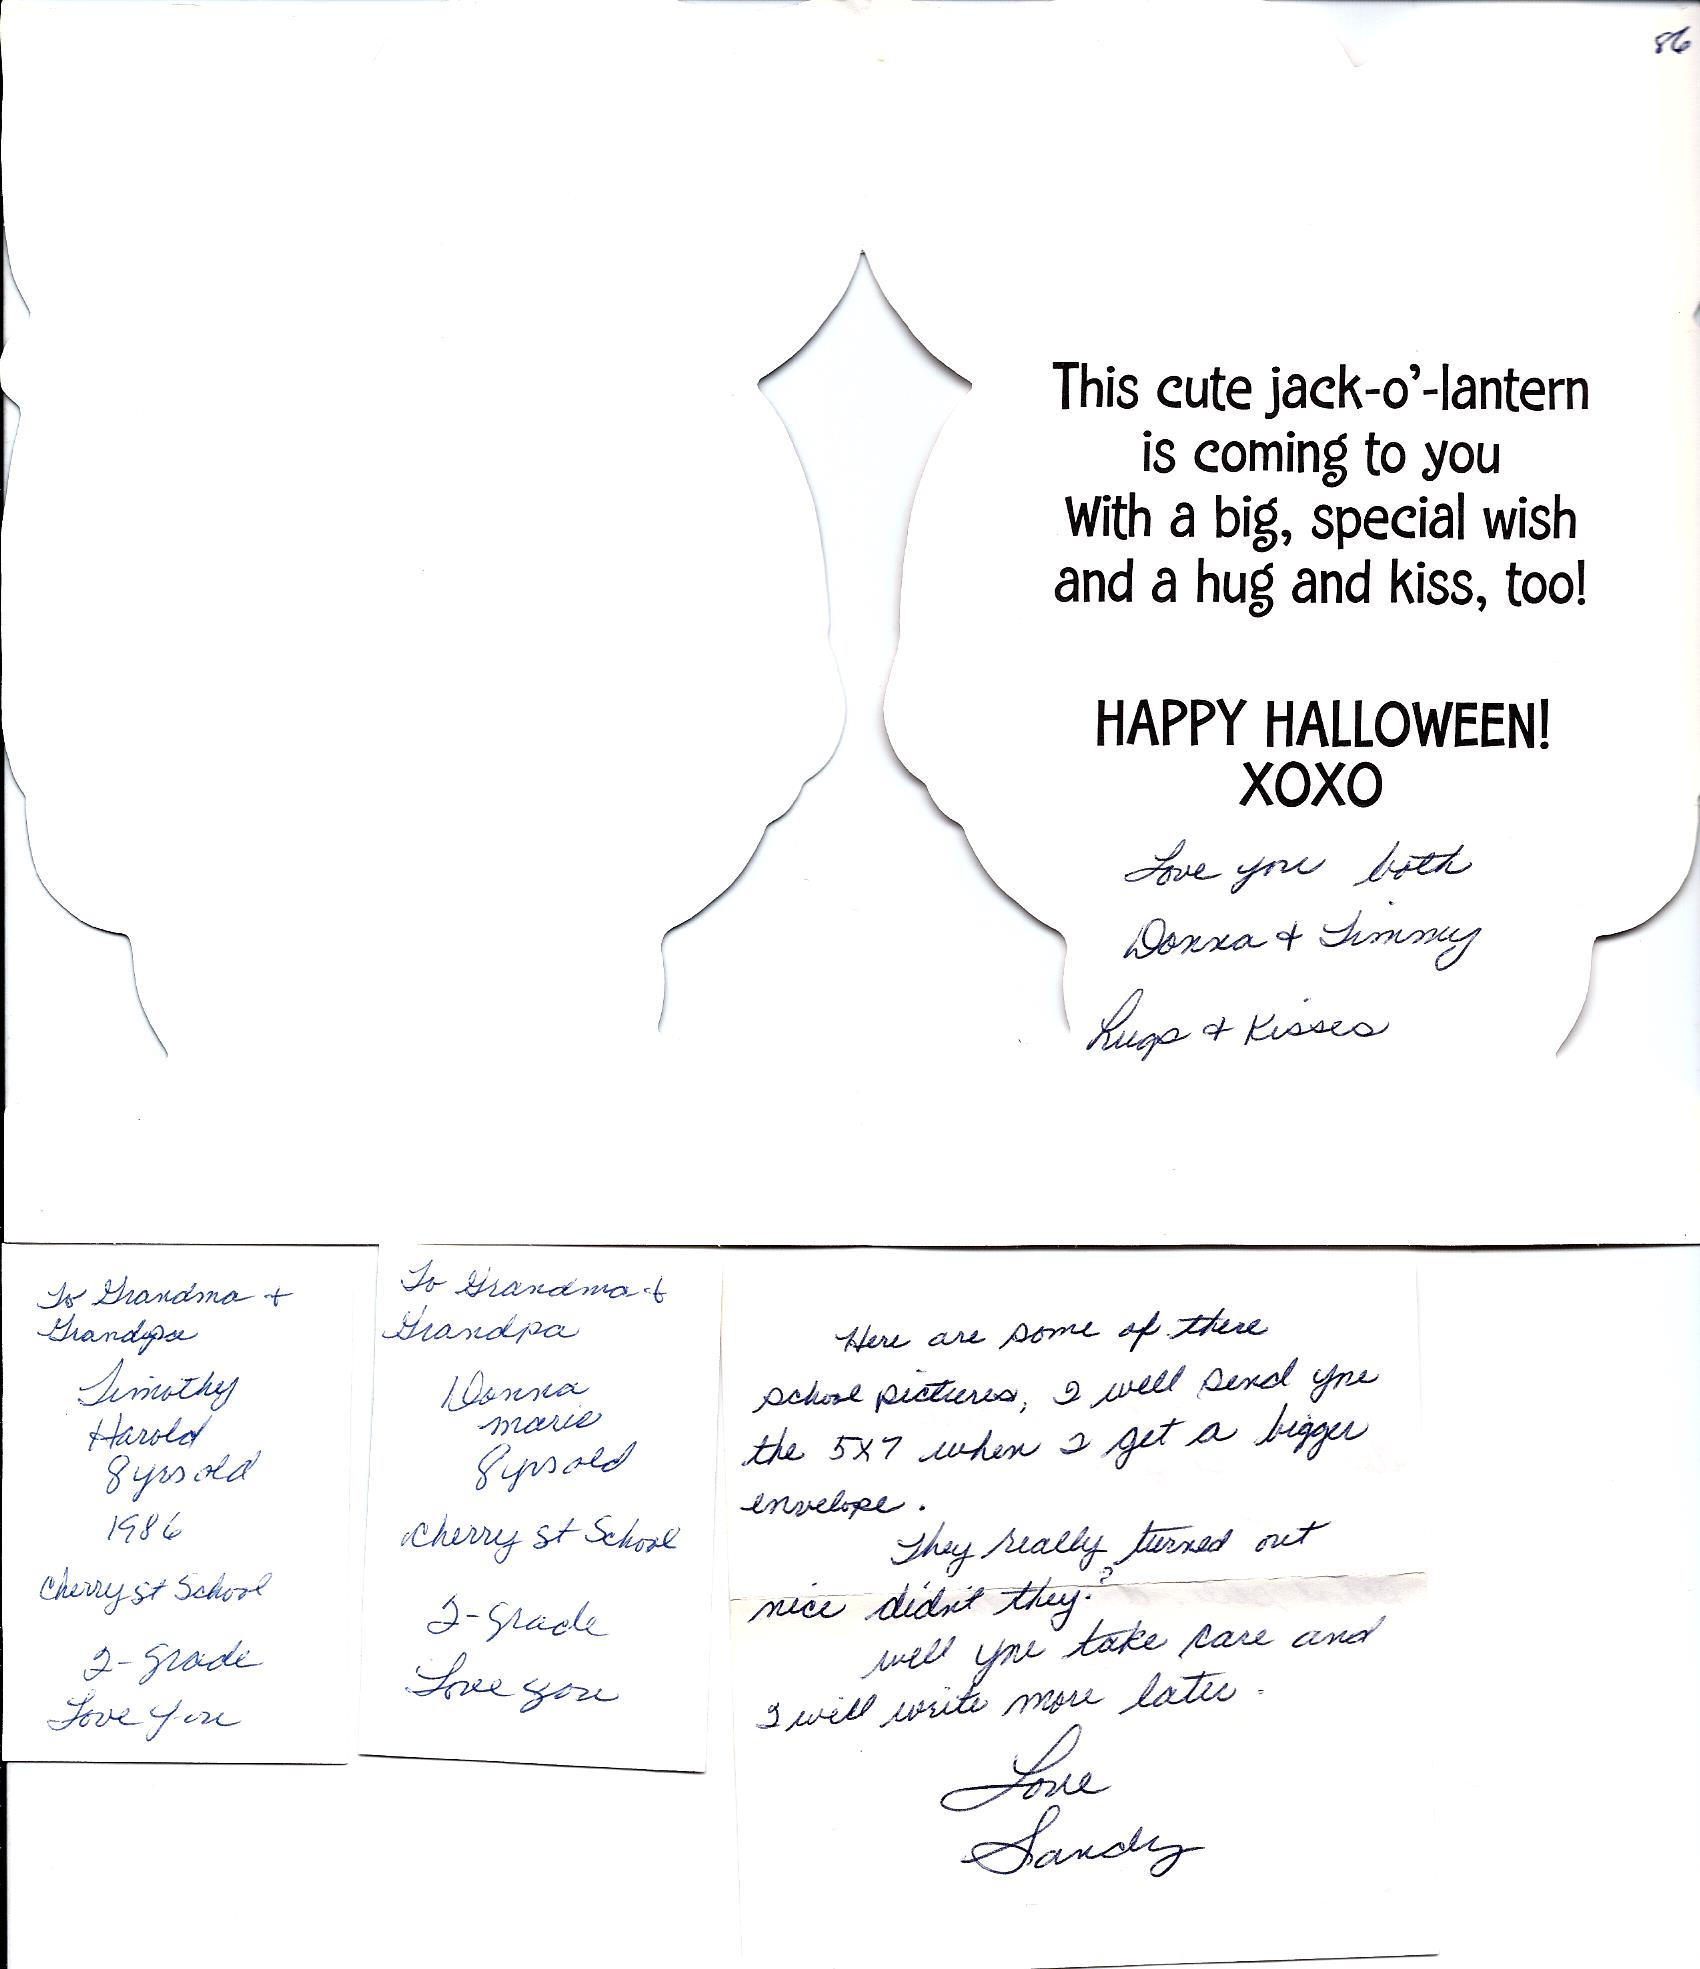 86
This cute jack-o'-lantern
is coming to you
With a big, special wish
and a hug and kiss, too!
HAPPY HALLOWEEN!
XOXO
Love you both
Donna + Timmy
Hugs + Kisses
To Grandma +
Grandpa
Timothy
Harold
8 yrs old
1986
Cherry St School
2-grade
Love you
To Grandma +
Grandpa
Donna
marie
8 yrs old
Cherry St School
2-grade
Love you
Here are some of there
school pictures, I well send you
the 5x7 when I get a bigger
envelope.
They really turned out
nice didn't they?
well you take care and
I will write more later.
Love
Sandy